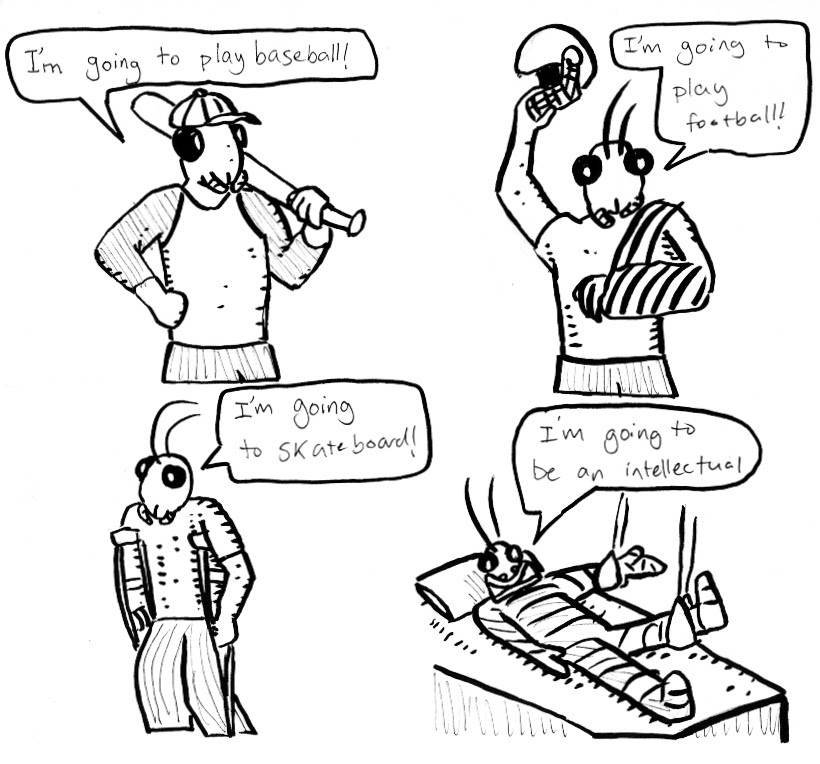 I'm going to play baseball!
I'm going to
play
football!
I'm going
to skateboard!
I'm going to
be an intellectual